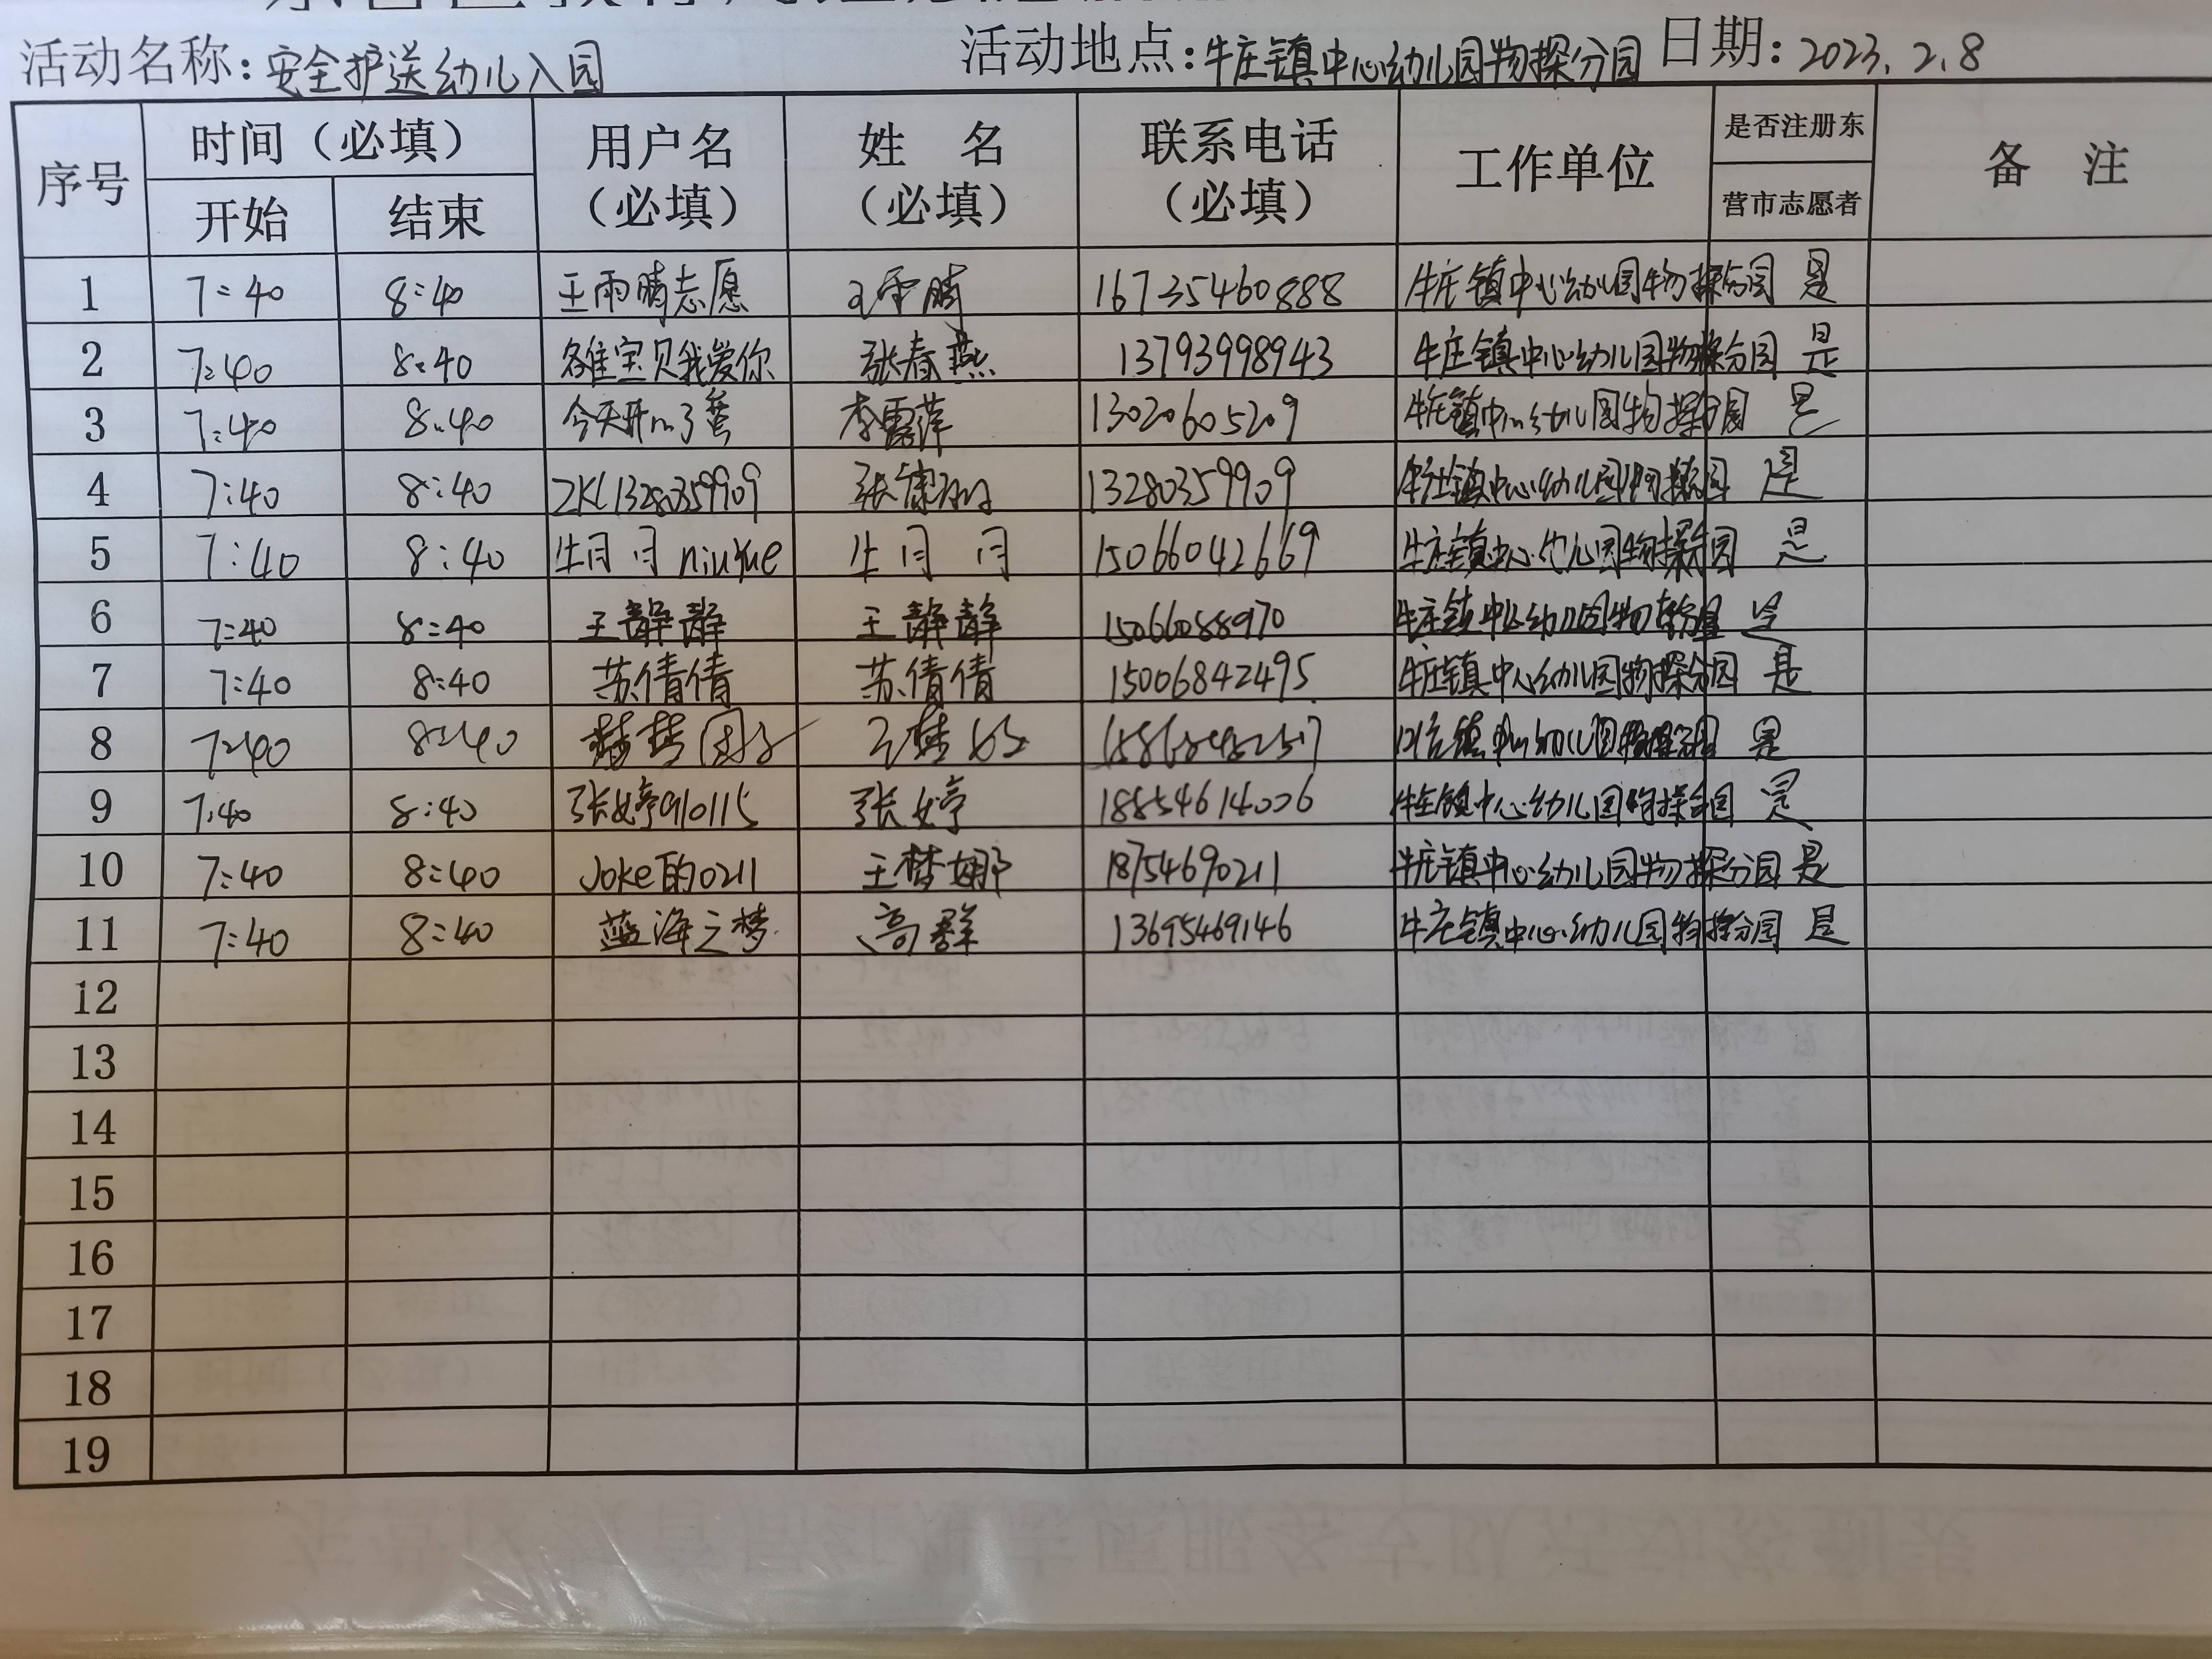 活动名称：安全护送幼儿入园 活动地点：牛庄镇中心幼儿园物探分园 日期：2023.2.8
序号 时间（必填） 用户名（必填） 姓 名（必填） 联系电话（必填） 工作单位 是否注册东营市志愿者 备 注
开始 结束
1 7:40 8:40 王雨晴志愿 王雨晴 16735460888 牛庄镇中心幼儿园物探分园 是
2 7:40 8:40 各隹宝贝我爱你 张春燕 13793998943 牛庄镇中心幼儿园物探分园 是
3 7:40 8:40 今天开心了鸾 李露萍 13020605209 牛庄镇中心幼儿园物探分园 是
4 7:40 8:40 ZKL13280359909 张康 13280359909 牛庄镇中心幼儿园物探分园 是
5 7:40 8:40 牛月月niuyue 牛月月 15066042669 牛庄镇中心幼儿园物探分园 是
6 7:40 8:40 王静静 王静静 15066088970 牛庄镇中心幼儿园物探分园 是
7 7:40 8:40 苏倩倩 苏倩倩 15006842495 牛庄镇中心幼儿园物探分园 是
8 7:40 8:40 牛庄镇中心幼儿园物探分园 是
9 7:40 8:40 张婷910115 张婷 18854614006 牛庄镇中心幼儿园物探分园 是
10 7:40 8:40 Joke的0211 王梦娜 18754690211 牛庄镇中心幼儿园物探分园 是
11 7:40 8:40 蓝海之梦 高群 13695469146 牛庄镇中心幼儿园物探分园 是
12
13
14
15
16
17
18
19